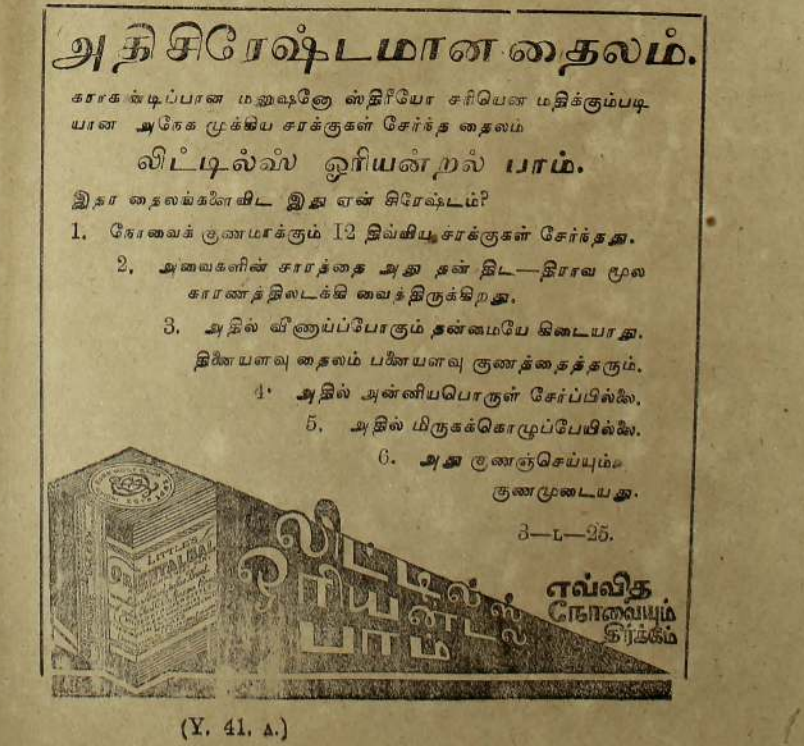 அதிசிரேஷ்டமான தைலம்.
காரகண்டிப்பான மனுஷனோ ஸ்திரீயோ சரியென மதிக்கும்படி
யான அநேக முக்கிய சரக்குகள் சேர்ந்த தைலம்
லிட்டில்ஸ் ஓரியன்றல் பாம்.
இதர தைலங்களைவிட இது ஏன் சிரேஷ்டம்?
1. நோவைக் குணமாக்கும் 12 திவ்விய சரக்குகள் சேர்ந்தது.
2. அவைகளின் சாரத்தை அது தன் திட—திராவ மூல
காரணத்திலடக்கி வைத்திருக்கிறது.
3. அதில் வீணாய்ப்போகும் தன்மையே கிடையாது.
தினையளவு தைலம் பனையளவு குணத்தைத்தரும்.
4. அதில் அன்னியபொருள் சேர்ப்பில்லை.
5. அதில் மிருகக்கொழுப்பேயில்லை.
6. அது குணஞ்செய்யும்
குணமுடையது.
3—L—25.
LITTLE'S
ORIENTAL BALM
லிட்டில்ஸ்
ஓரியண்டல்
பாம்
எவ்வித
நோவையும்
திர்க்கும்
(Y. 41. A.)